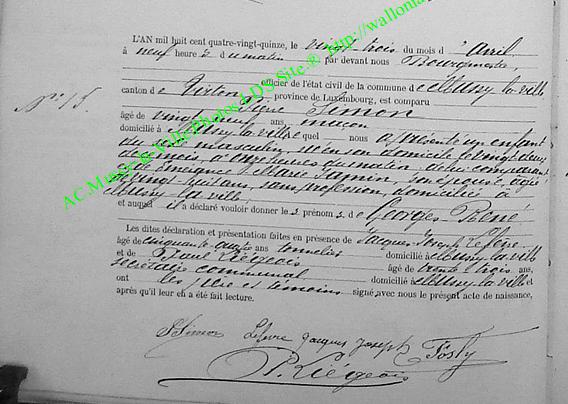 L'AN mil huit cent quatre-vingt-quinze, le vingt-trois du mois d'Avril
à neuf heures du matin par devant nous Bourgmestre,
officier de l'état civil de la commune de Mussy-la-ville
canton de Virton, province de Luxembourg, est comparu
Simon
N° 15.
âgé de vingt ans, maçon
domicilié à Mussy-la-ville lequel nous a présenté un enfant
du sexe masculin, né en son domicile le vingt-deux
de ce mois, à onze heures du matin de lui comparant
et de Marie son épouse, âgée
de vingt-huit ans, sans profession, domiciliée à
Mussy-la-ville,
et auquel il a déclaré vouloir donner les prénoms de Georges-René
Les dites déclaration et présentation faites en présence de Jacques-Joseph Lefèvre
âgé de cinquante ans tonnelier domicilié à Mussy-la-ville
et de Paul Liégeois âgé de trente-trois ans,
secrétaire communal domicilié à Mussy-la-ville et
ont les père et témoins signé avec nous le présent acte de naissance,
après qu'il leur en a été fait lecture.
Simon Lefèvre Jacques Joseph
P. Liégeois
AC.Mussy © VillePhotos I.D.S Site ® http://wallonia